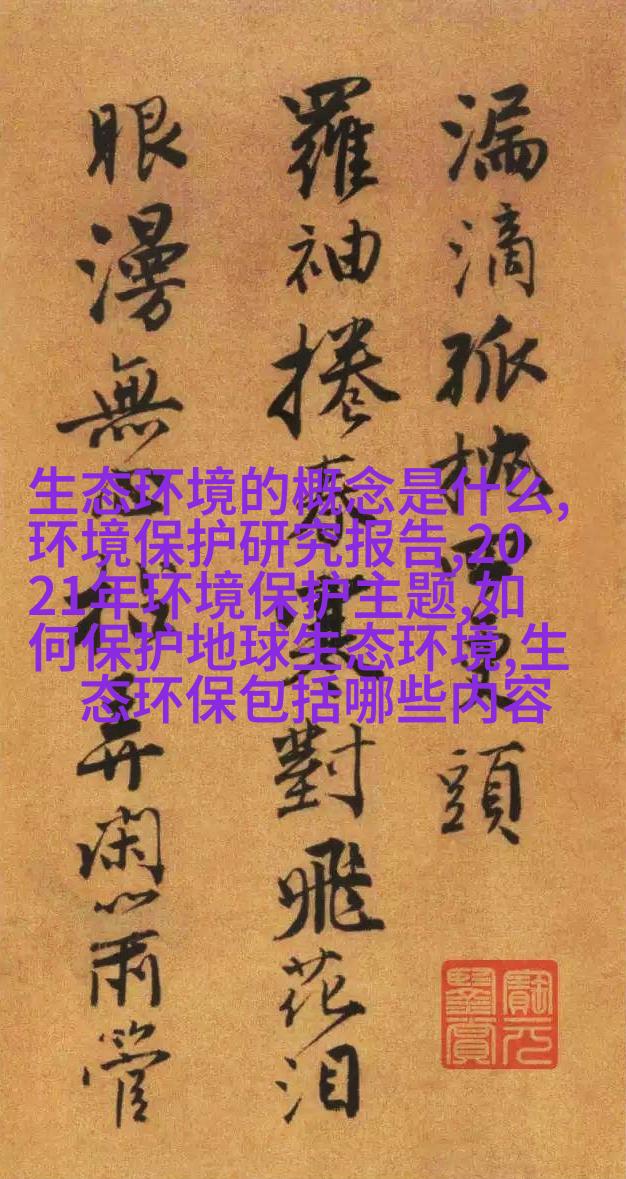 漏滴孤更頭
羅袖捲春寒對飛花泪
眼漫無閑心雨管
生态环境的概念是什么,
环境保护研究报告,20
21年环境保护主题,如
何保护地球生态环境,生
态环保包括哪些内容